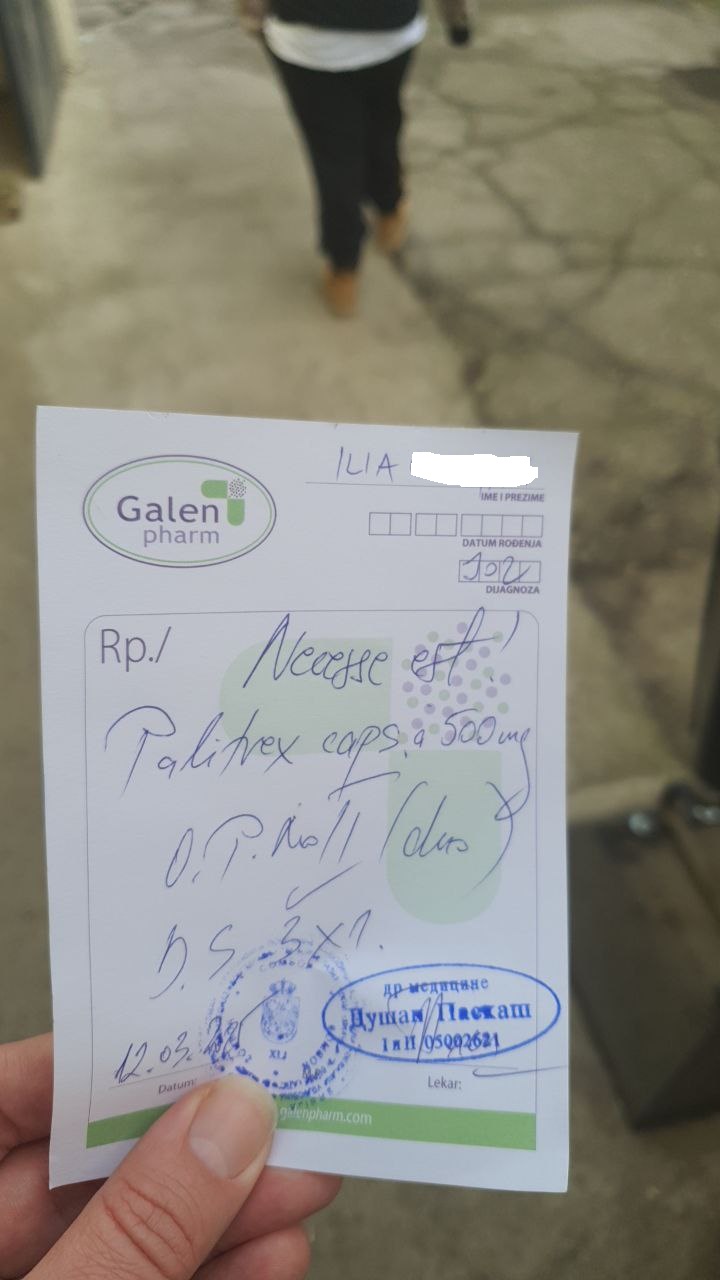 ILIA
Galen
pharm
IME I PREZIME
DATUM ROĐENJA
J02
DIJAGNOZA
Rp./
Necesse est!
Palitrex caps. a 500mg
O.P. No II (duo)
D.S. 3x1.
др медицине
Душан Паскаш
05002621
12.03.
XLI
Datum:
Lekar:
galenpharm.com